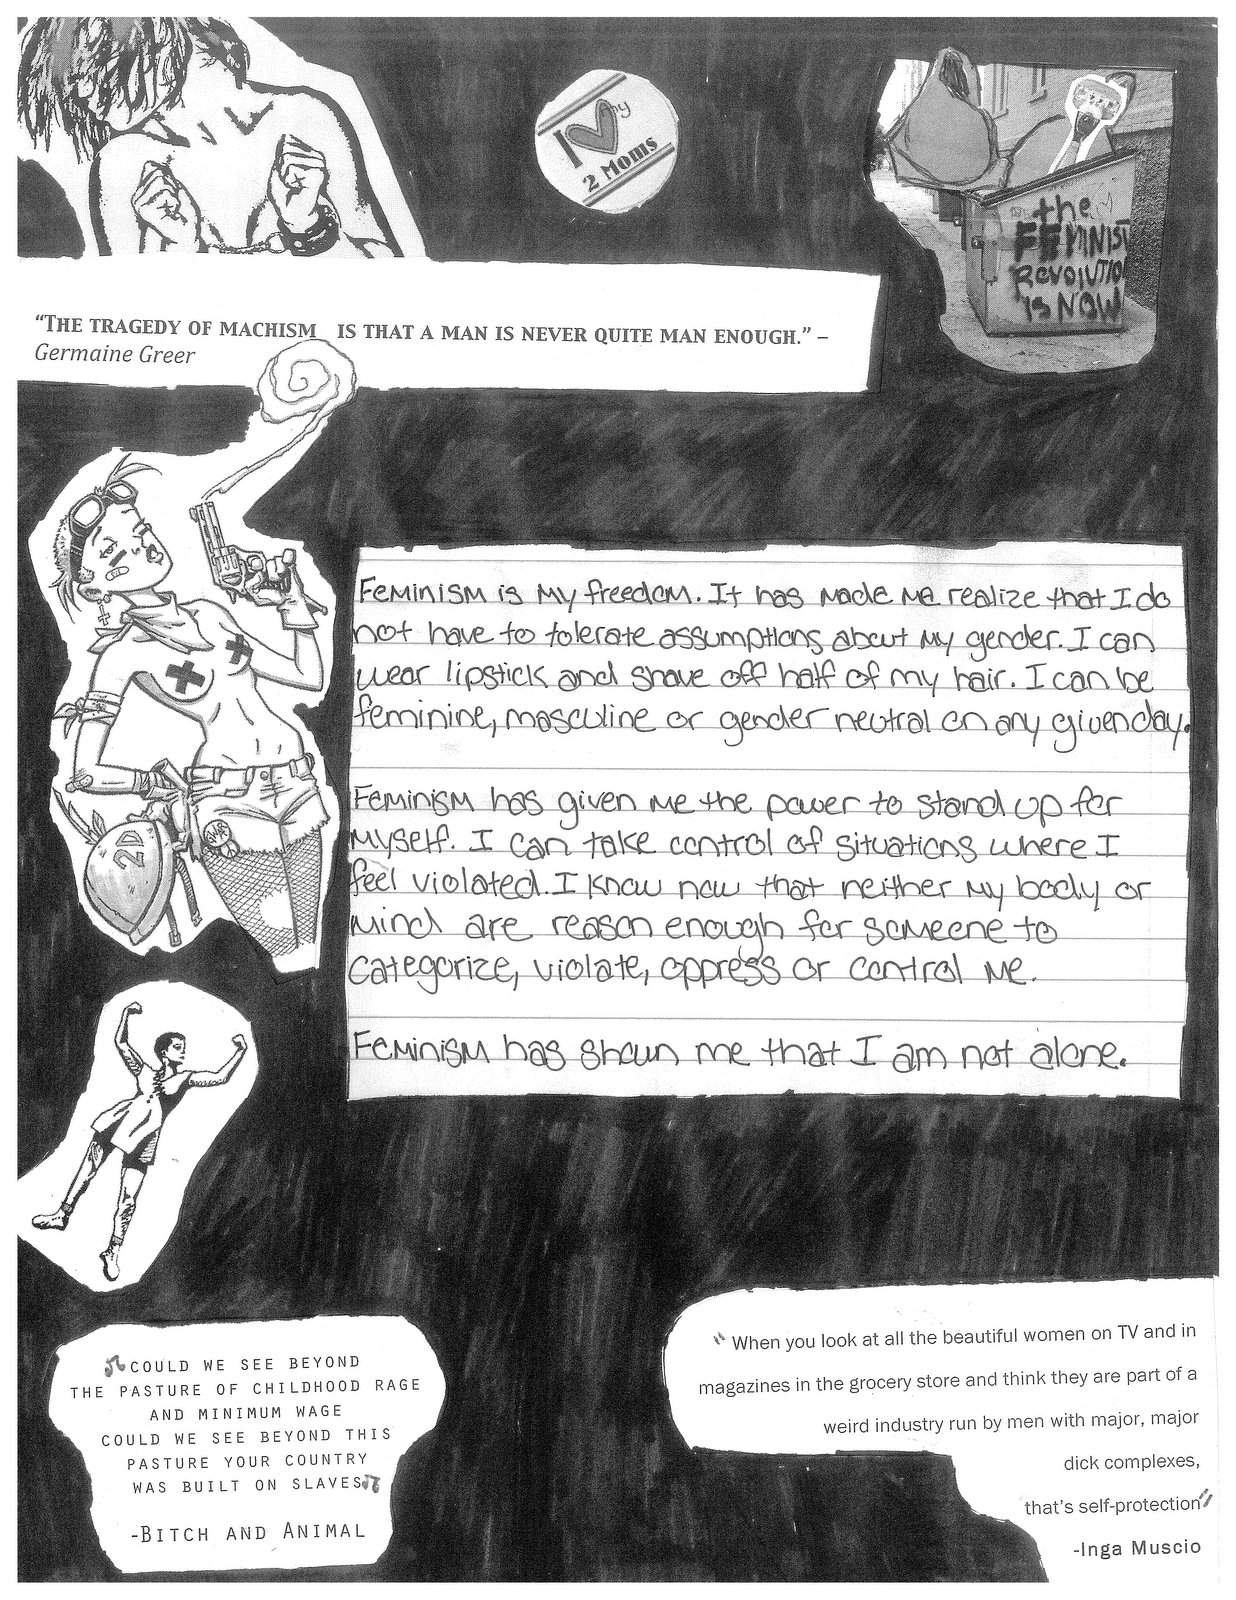 I ♥ my
2 Moms
the
FEMINIST
REVOLUTIO
IS NOW
“THE TRAGEDY OF MACHISM IS THAT A MAN IS NEVER QUITE MAN ENOUGH.” –
Germaine Greer
Feminism is my freedom. It has made me realize that I do
not have to tolerate assumptions about my gender. I can
wear lipstick and shave off half of my hair. I can be
feminine, masculine or gender neutral on any given day.
Feminism has given me the power to stand up for
myself. I can take control of situations where I
feel violated. I know now that neither my body or
mind are reason enough for someone to
categorize, violate, oppress or control me.
Feminism has shown me that I am not alone.
2D
♫ COULD WE SEE BEYOND
THE PASTURE OF CHILDHOOD RAGE
AND MINIMUM WAGE
COULD WE SEE BEYOND THIS
PASTURE YOUR COUNTRY
WAS BUILT ON SLAVES ♫
-BITCH AND ANIMAL
" When you look at all the beautiful women on TV and in
magazines in the grocery store and think they are part of a
weird industry run by men with major, major
dick complexes,
that's self-protection"
-Inga Muscio